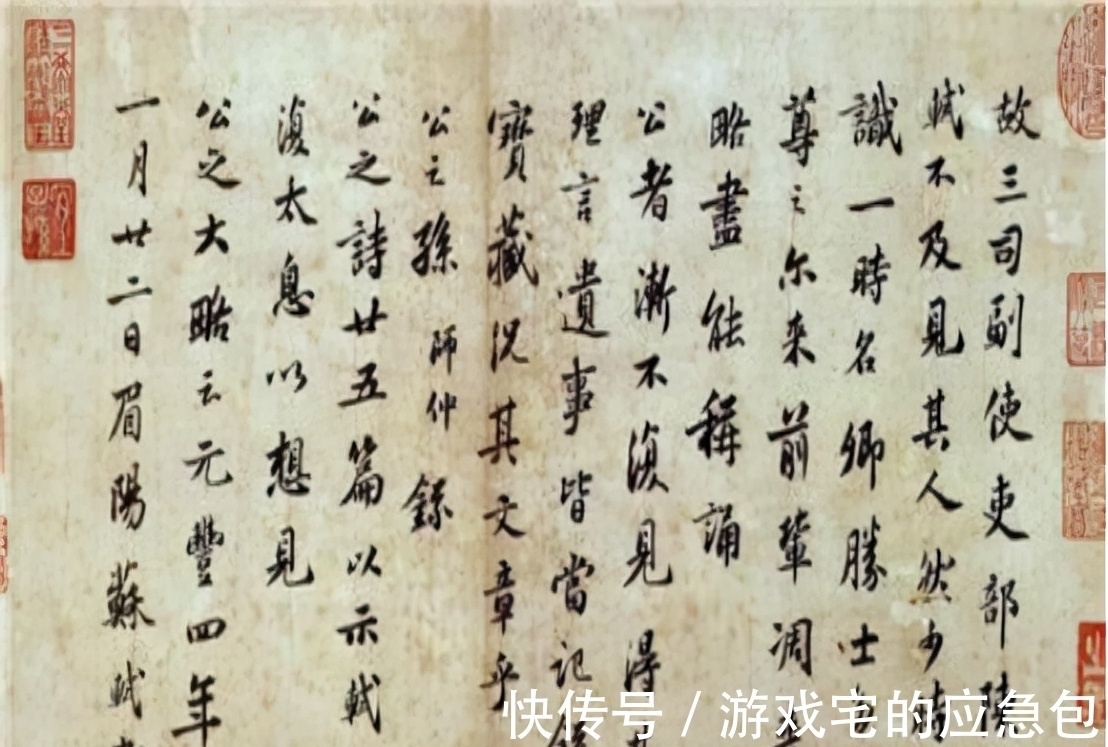 故三司副使吏部陳
軾不及見其人然少
識一時名卿勝士
尊之尓来前輩凋
略盡能稱誦
公者漸不復見得
理言遺事皆當記
寶藏況其文章乎
公之孫師仲錄
公之詩廿五篇以示軾
復太息以想見
公之大略云元豐四年
一月廿二日眉陽蘇軾
快传号/游戏宅的应急包